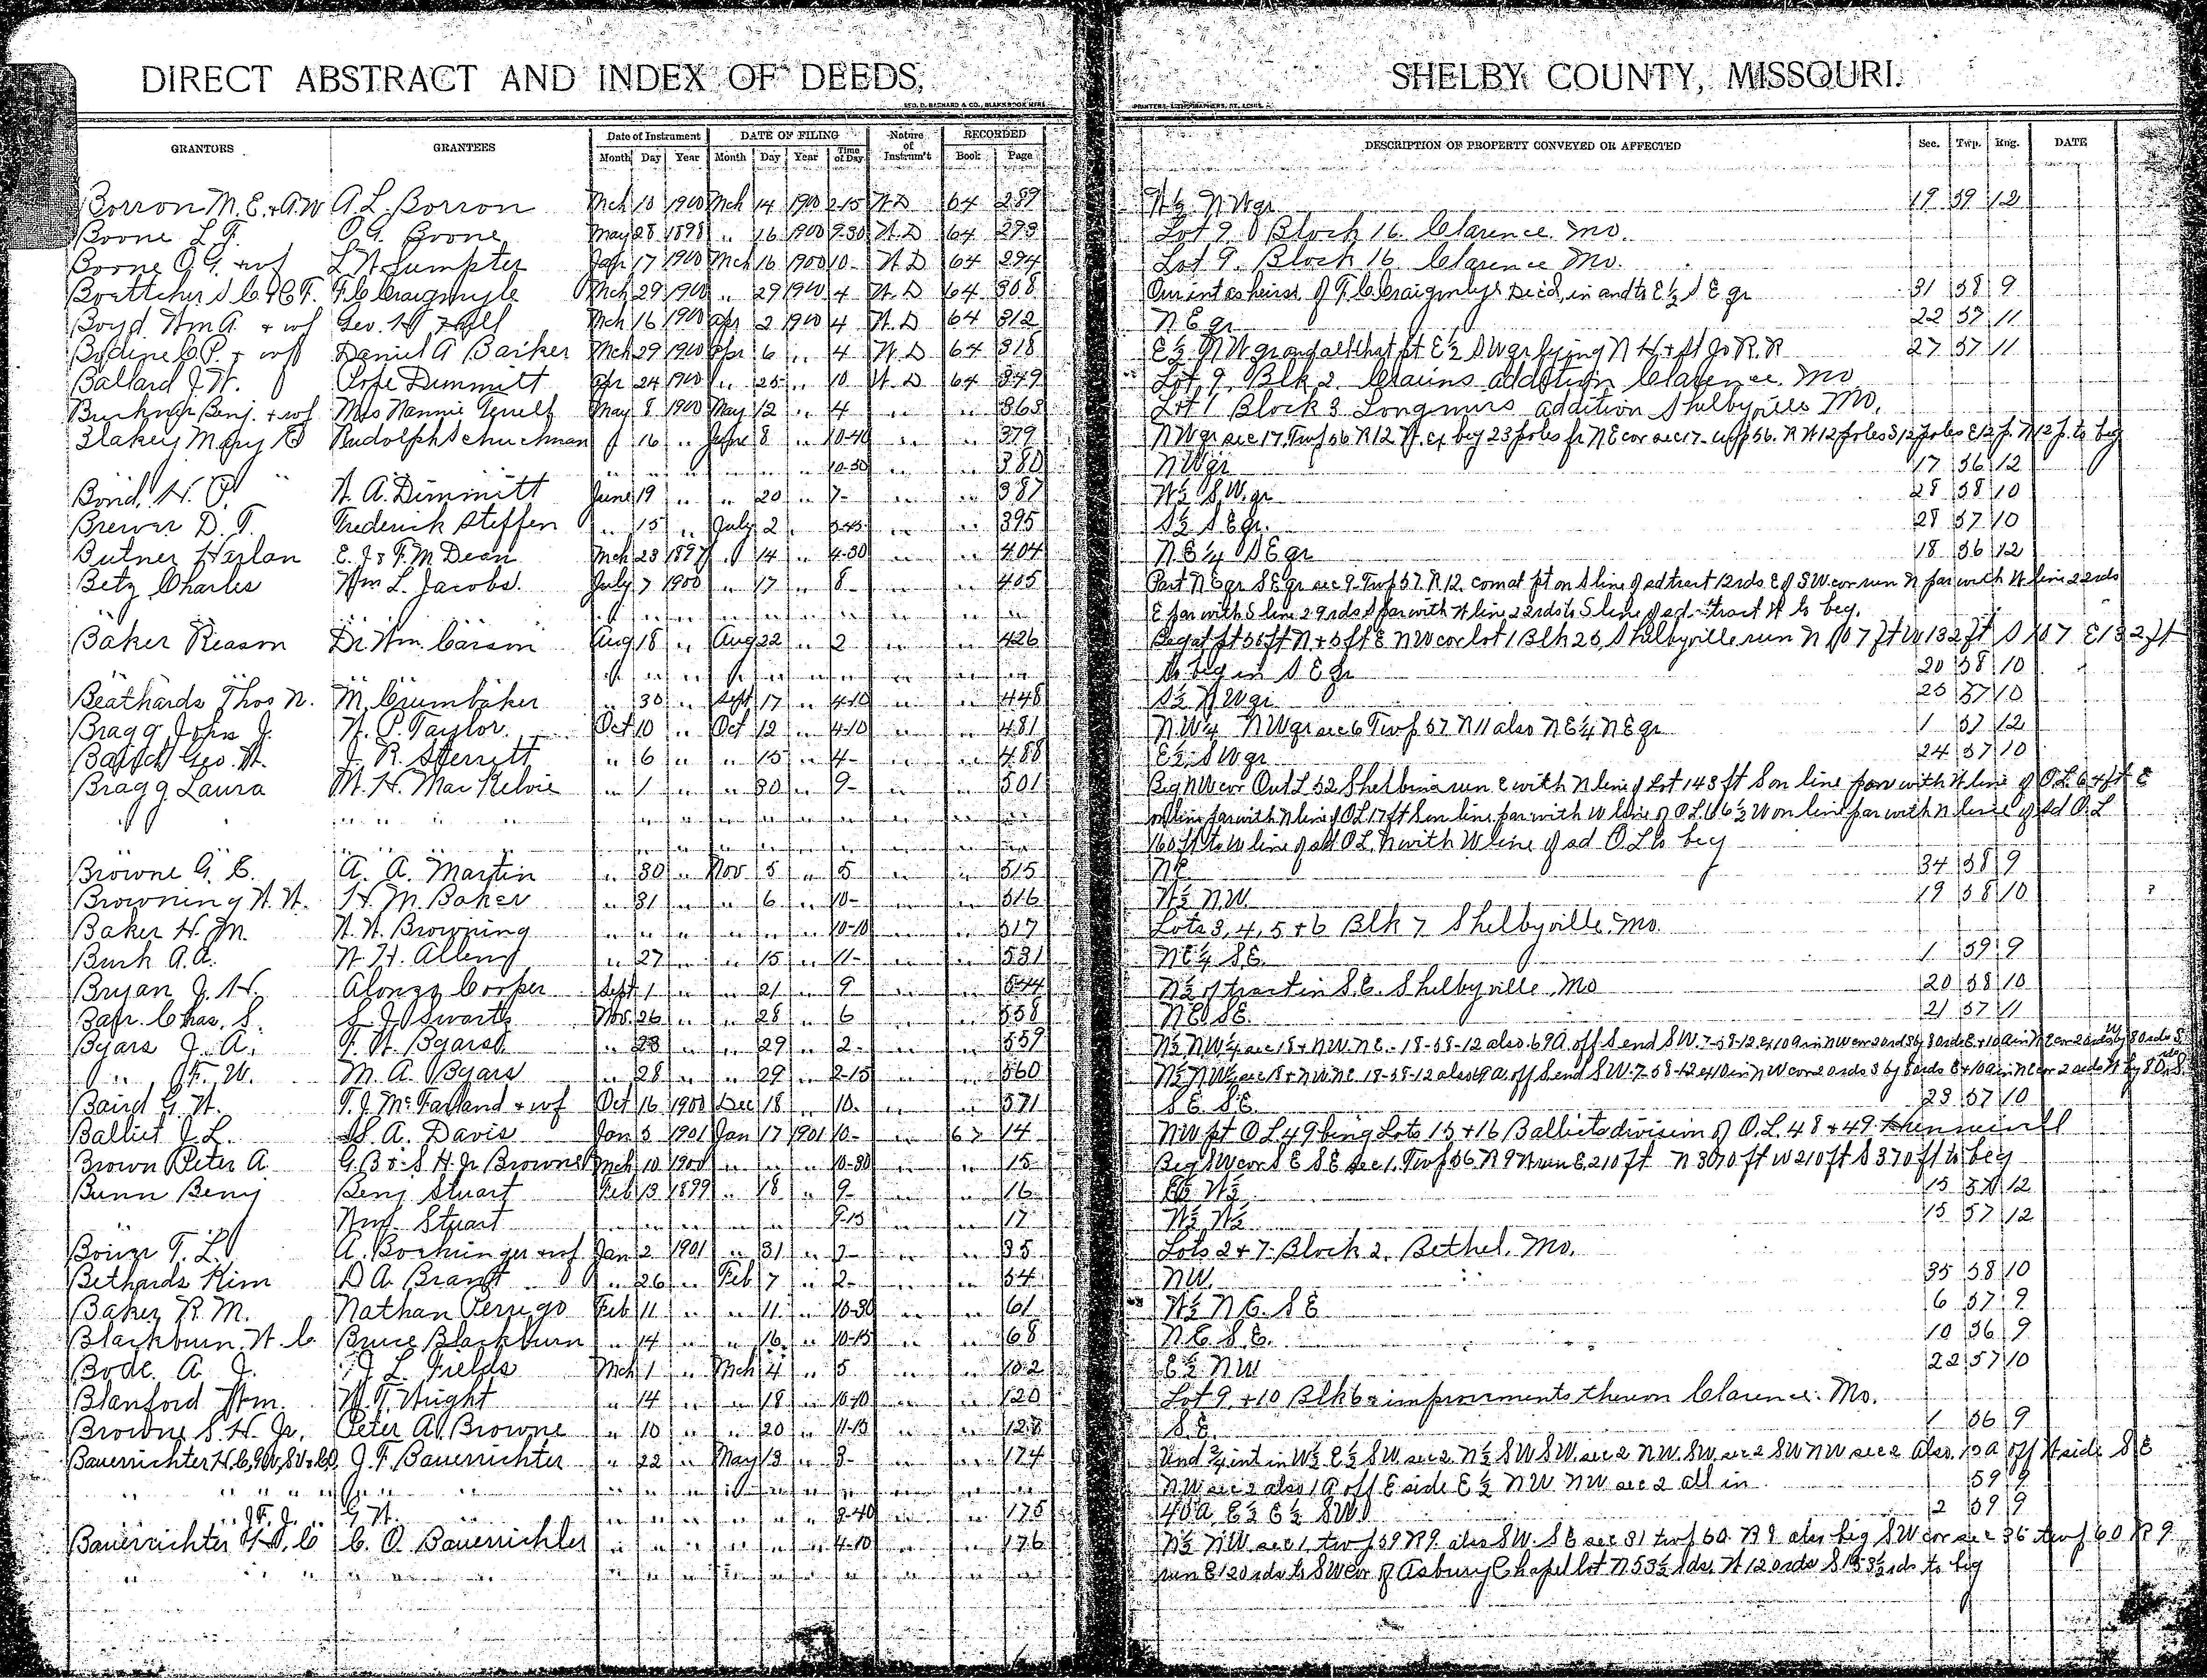 DIRECT ABSTRACT AND INDEX OF DEEDS, SHELBY COUNTY, MISSOURI.
GEO. D. BARNARD & CO., BLANK BOOK MFRS. PRINTERS, LITHOGRAPHERS, ST. LOUIS.
GRANTORS GRANTEES Date of Instrument DATE OF FILING Nature of Instrum't RECORDED DESCRIPTION OF PROPERTY CONVEYED OR AFFECTED Sec. Twp. Rng. DATE
Month Day Year Month Day Year Time of Day Book Page
Borron M.E. + A.W A.L. Borron Mch 10 1900 Mch 14 1900 2-15 W D 64 289 W½ NWqr 19 59 12
Boone L. F. O.G. Boone May 28 1898 " 16 1900 9-30 W.D 64 293 Lot 9 Block 16 Clarence Mo.
Boone O.G. + wf L W Sumpter Mch 16 1900 10- W D 64 294 Lot 9 Block 16 Clarence Mo.
Boettcher S.C. + C.F. F.C. Craigmyle Mch 29 1900 " 29 1900 4 W.D 64 308 Our int as heirs of F.C. Craigmyle Decd, in and to E½ S E qr 31 58 9
Boyd Wm A. + wf Geo. H Hall Mch 16 1900 Apr 2 1900 4 W.D 64 312 N E qr 22 57 11
Bodine C.P. + wf Daniel A Barker Mch 29 1900 Apr 6 " 4 W D 64 318 E½ NW qr and all that pt E½ SWqr lying N H + St Jo R.R 27 57 11
Ballard J.W. Pope Dimmitt Apr 24 1900 " 25 " 10 W.D 64 349 Lot 9 Blk 2 addition Clarence. Mo
Buckner Benj. + wf Mrs Nannie Terrell May 8 1900 May 12 " 4 " " 363 Lot 1 Block 3 Longmires addition Shelbyville Mo.
Blakey Mary Rudolph Schuchman " 16 " June 8 " 10-40 " " 379 NWqr sec 17, Twp 56 R12 W. ex beg 23 poles fr NE cor sec 17 Twp 56. R W12 poles S12 poles E12 p. N12 p. to beg
" " " " " " 10-50 " " 380 NWqr 17 56 12
Bond, H. P. W. A. Dimmitt June 19 " " 20 " 7- " " 387 W½ S.W.qr 28 58 10
Brewer D. T. Frederick Steffen " 15 " July 2 " 3-45 " " 395 S½ S Eqr. 28 57 10
Butner Harlan E. J & F.M Dean Mch 23 1897 " 14 " 4-30 " " 404 NE¼ SEqr 18 56 12
Betz Charles Wm L. Jacobs. July 7 1900 " 17 " 8- " " 405 Part NEqr SEqr sec 9. Twp 57. R12. com at pt on S line of sd tract 12rds E of SW cor run N par with W line 22rds
" " " " " " " " " E par with S line 29rds S par with W line 22rds to S line of sd tract W to beg.
Baker Reason Dr Wm. Carson Aug 18 " Aug 22 " 2 " " 426 Beg at pt 55ft N + 5ft E NW cor lot 1 Blk 25, Shelbyville run N 107 ft W 132 ft S 107 E 132 ft
" " " " " " " " " to beg in S E qr 20 58 10
Beathards Thos N. M. Crumbaker " 30 " Sept 17 " 4-10 " " 448 S½ NWqr 25 57 10
Bragg John J. W. P. Taylor. Oct 10 " Oct 12 " 4-10 " " 481 N.W¼ NWqr sec 6 Twp 57 R11 also N E¼ N E qr 1 57 12
Baird Geo. W. J. R. Sherritt " 6 " " 15 " 4- " " 488 E½ SWqr 24 57 10
Bragg Laura M. H. Mac Kelvie " 1 " " 30 " 9- " " 501 Beg NW cor Out L 52 Shelbina run E with N line of Lot 148 ft S on line par with W line of O L 64 ft E
" " " " " " " " " on line par with N line of OL 17 ft S on line par with W line of O L 66½ W on line par with N line of sd O.L
" " " " " " " " " 160 ft to W line of sd OL, N with W line of sd O L to beg
Browne G. C. A. A. Martin " 30 " Nov 5 " 5 " " 515 NE 34 58 9
Browning W. W. H. M. Baker " 31 " " 6 " 10- " " 516 W½ NW. 19 58 10
Baker H. M. W. W. Browning " " " " " " 10-10 " " 517 Lots 3, 4, 5 + 6 Blk 7 Shelbyville. Mo.
Burk A.A. W. H. Allen " 27 " " 15 " 11- " " 531 NE¼ SE. 1 59 9
Bryan J. H. Alonzo Cooper Sept 1 " " 21 " 9 " " 544 N½ of tract in S.E. Shelbyville, Mo 20 58 10
Chas. S. S. J. Swarts Nov. 26 " " 28 " 6 " " 558 NE SE. 21 57 11
Byars J. A. F. W. Byars " 28 " " 29 " 2- " " 559 N½ NW¼ sec 18 + NW. NE. - 18-58-12 also 69A off S end SW. 7-58-12
" F. W. M. A. Byars " 28 " " 29 " 2-15 " " 560 N½ NW¼ sec 18 + NW.NE 18-58-12 also 69 a. off S end SW-7-58-12
Baird G. W. T. J. McFarland + wf Oct 16 1900 Dec 18 " 10. " " 571 SE. SE. 23 57 10
Balliet J. L. S. A. Davis Jan 5 1901 Jan 17 1901 10- " 67 14 NW pt O L 49 being Lots 15 + 16 Balliets division of O.L. 48 + 49
Brown Peter A. G. B & S. H. Jr Browne Mch 10 1900 " " " 10-30 " " 15 Beg SW cor S E S E Sec 1. Twp 56 R 9 N run E, 210 ft N 370 ft W 210 ft S 370 ft to beg
Bunn Benj Benj Stuart Feb 13 1899 " 18 " 9- " " 16 E½ W½ 15 57 12
" Wm. Stuart " " " " " " 9-15 " " 17 W½ W½ 15 57 12
T. L. A. Boehringer + wf Jan 2 1901 " 31 " " " 35 Lots 2 + 7 Block 2, Bethel. Mo.
Bethards Kim D A. Brant " 26 " Feb 7 " 2- " " 54 NW. 35 58 10
Baker R. M. Nathan Perrigo Feb 11 " " 11 " 10-30 " " 61 W½ N.E. SE 6 57 9
Blackburn W. C. Bruce Blackburn " 14 " " 16 " 10-15 " " 68 N.E. S.E. 10 56 9
Bode A. J. J. L. Fields Mch 1 " Mch 4 " 5 " " 102 E½ NW 22 57 10
Blanford Wm. W. T. Wright " 14 " " 18 " 10-10 " " 120 Lot 9 + 10 Blk 6 improvements thereon Clarence. Mo.
Browne S. H. Jr. Peter A. Browne " 10 " " 20 " 11-15 " " 128 S.E. 1 56 9
Bauerrichter J. F. Bauerrichter " 22 " May 13 " 3- " " 174 Und ¾ int in W½ E½ SW sec 2 N½ SW SW. sec 2 NW. SW. sec 2 SW NW sec 2 also 13 a off W side S E
" " " " " " " " " NW sec 2 also 1 a off E side E ½ NW NW sec 2 all in 59 9
" J.F. J. " G. W. " " " " " " " 3-40 " " 175 40a, E½ E½ SW 2 59 9
Bauerrichter C. O. Bauerrichter " " " " " " 4-10 " " 176 N½ NW sec 1, twp 59 R9. also SW. SE sec 31 twp 60 R 9 also beg SW cor sec 36 twp 60 R 9
" " " " " " " " " run E 120 rds to SW cor of Asbury Chapel lot N 53½ rds, W 120 rds S 53½ rds to beg